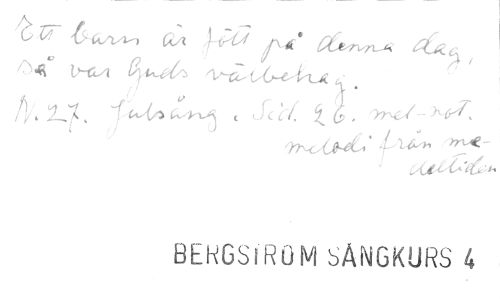 Ett barn är fött på denna dag,
så var Guds välbehag.
N. 27. Julsång. Sid. 26. mel-not.
melodi från me-
deltiden
BERGSTRÖM SÅNGKURS 4